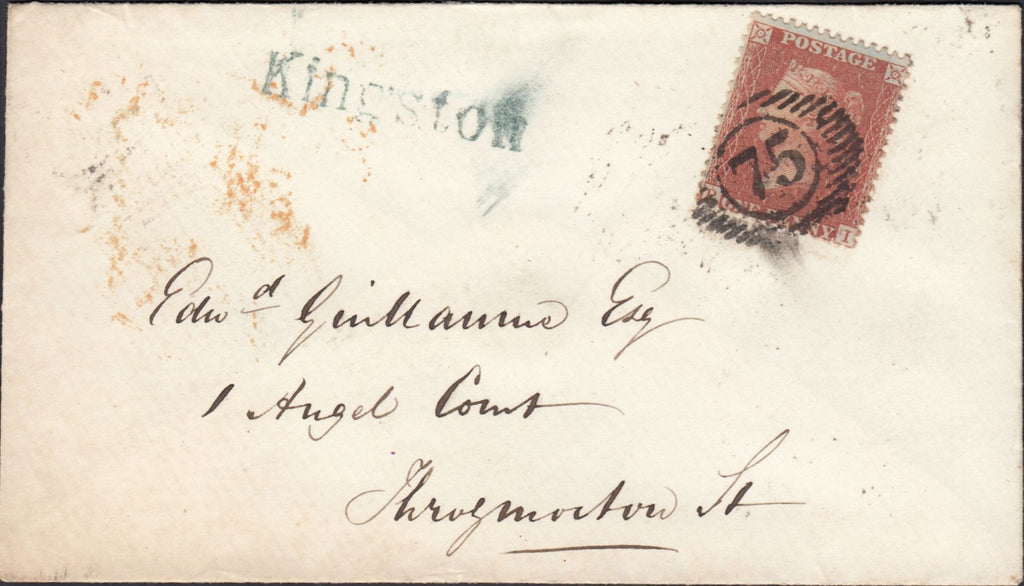 Kingston
POSTAGE
75
I
Edwd Guillaume Esq
1 Angel Court
Throgmorton St